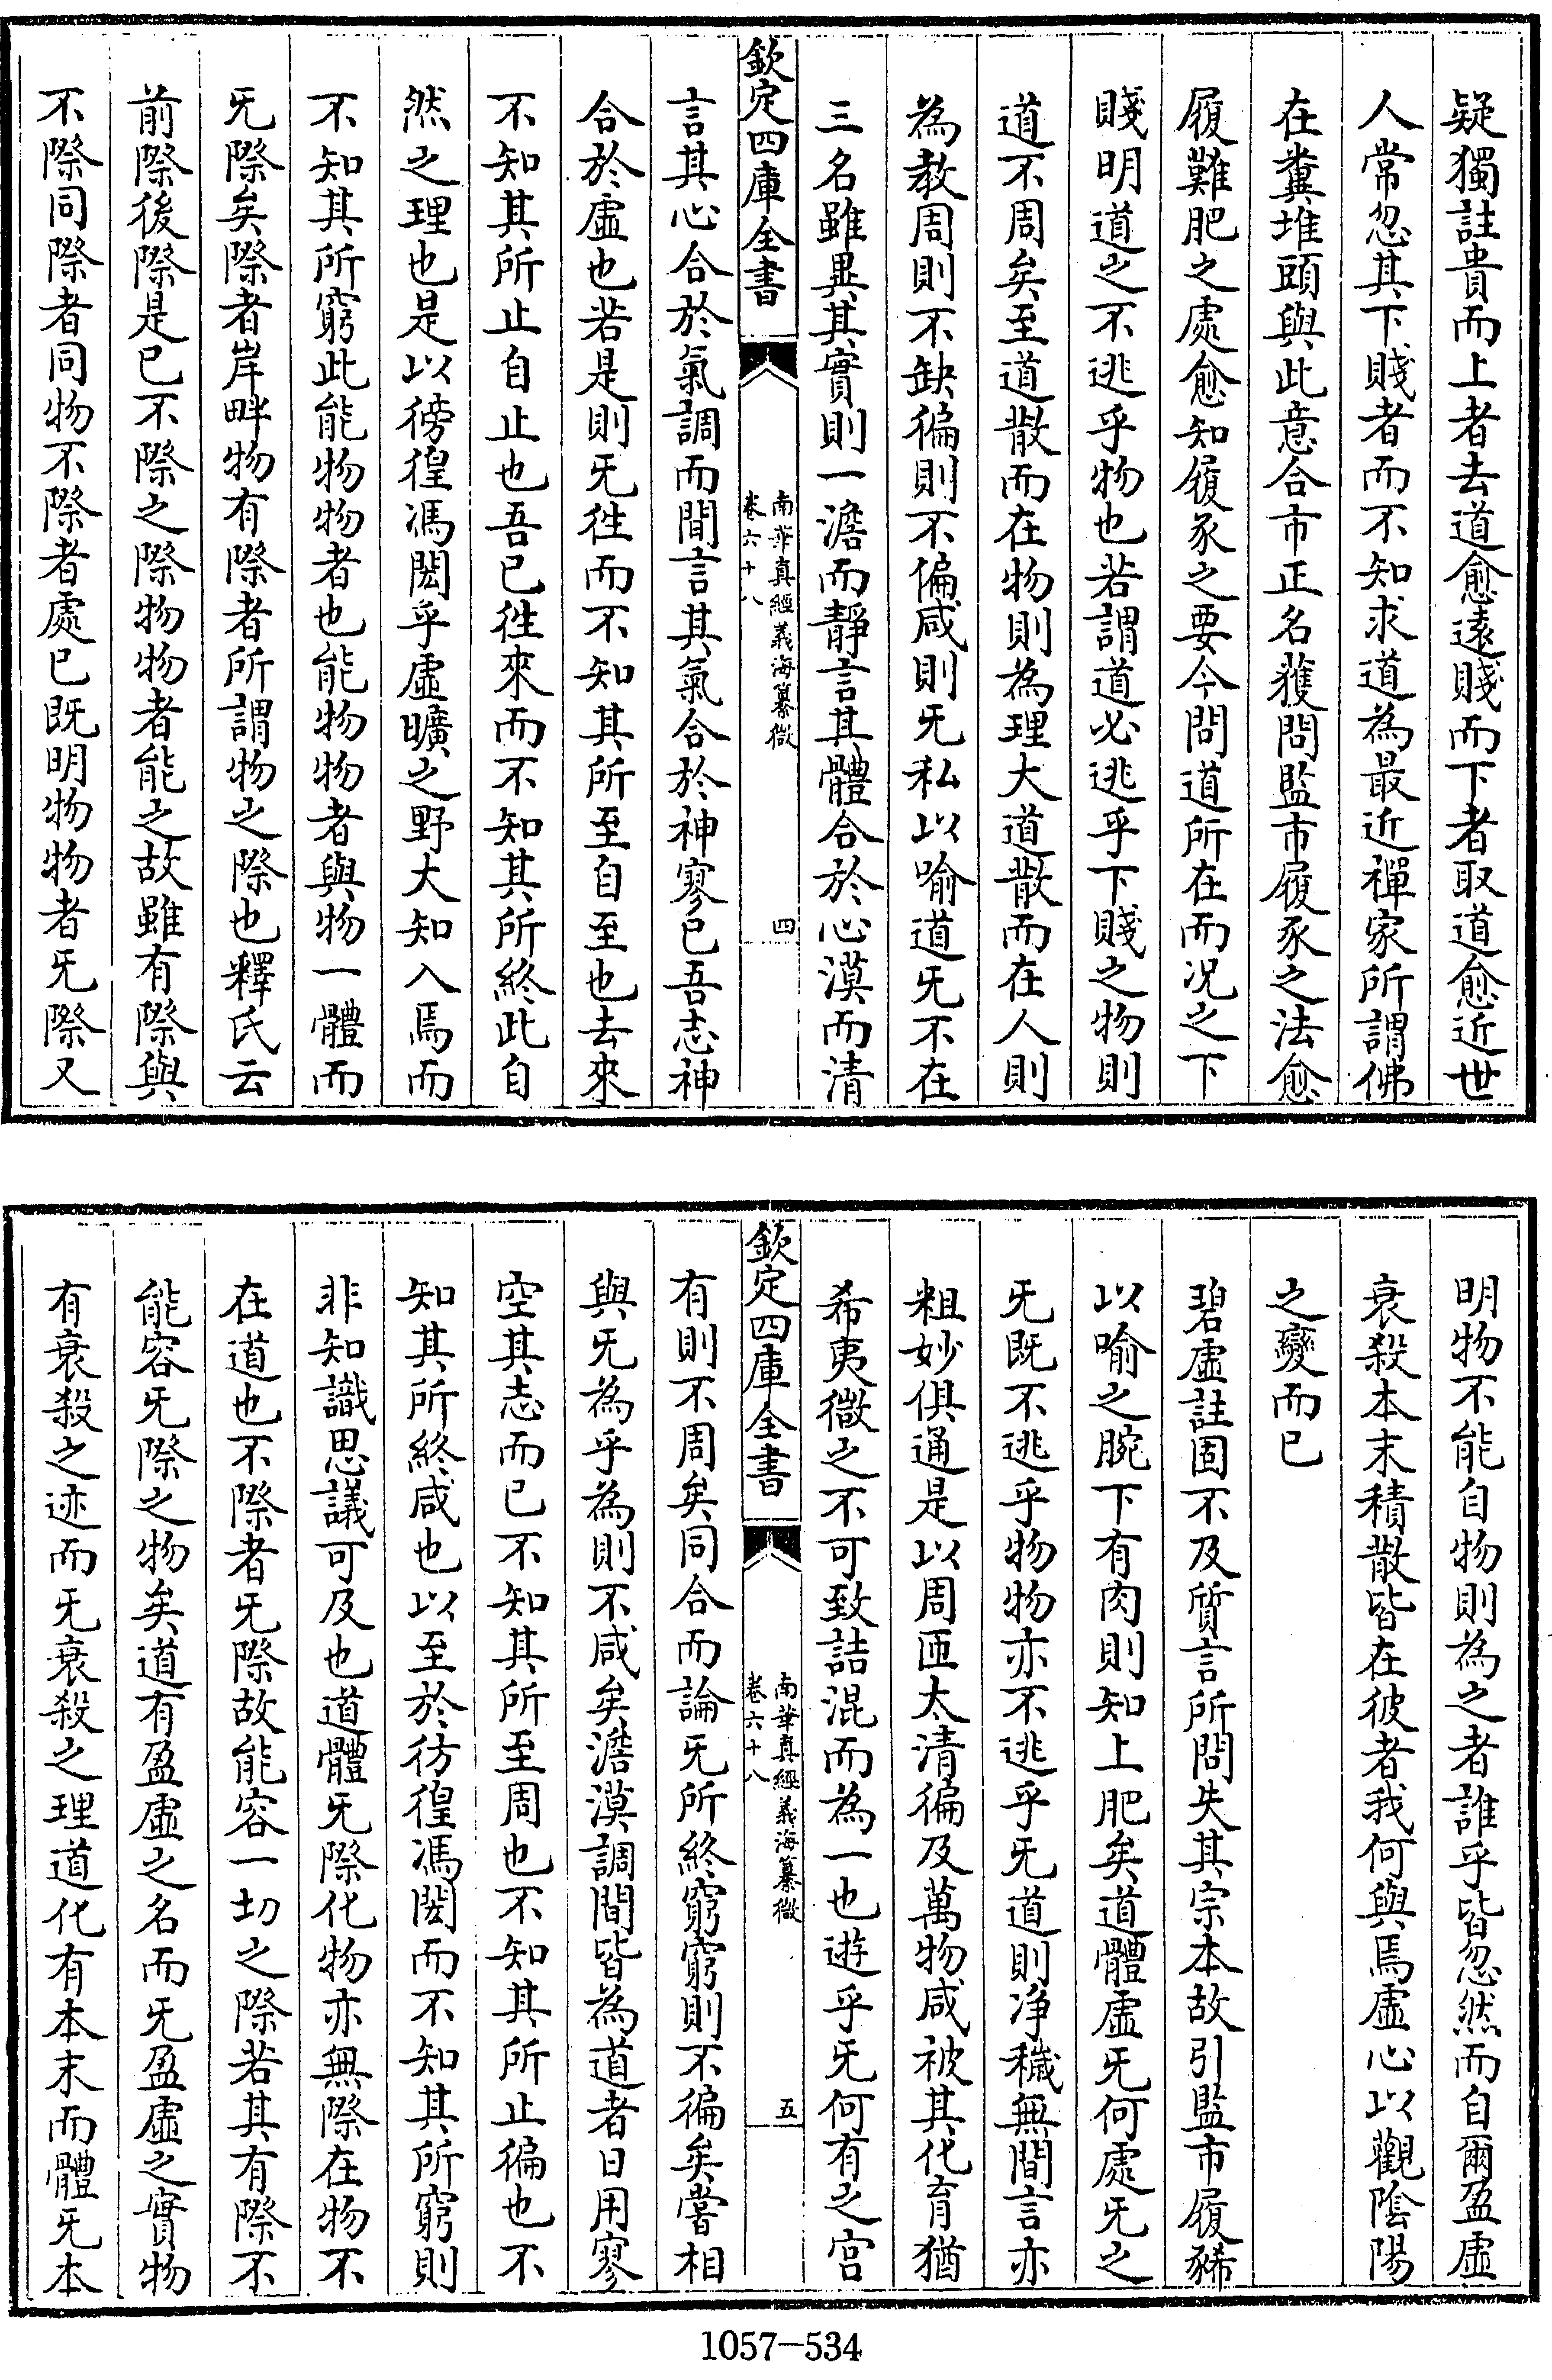 疑獨註貴而上者去道愈遠賤而下者取道愈近世
人常忽其下賤者而不知求道為最近禪家所謂佛
在糞堆頭與此意合市正名獲問監市履豕之法愈
履難肥之處愈知履豕之要今問道所在而况之下
賤明道之不逃乎物也若謂道必逃乎下賤之物則
道不周矣至道散而在物則為理大道散而在人則
為教周則不缺徧則不偏咸則无私以喻道无不在
三名雖異其實則一澹而靜言其體合於心漠而清
欽定四庫全書
南華真經義海纂微
卷六十八
四
言其心合於氣調而閒言其氣合於神寥已吾志神
合於虛也若是則无徃而不知其所至自至也去來
不知其所止自止也吾已徃來而不知其所終此自
然之理也是以徬徨馮閎乎虛曠之野大知入焉而
不知其所窮此能物物者也能物物者與物一體而
无際矣際者岸畔物有際者所謂物之際也釋氏云
前際後際是已不際之際物物者能之故雖有際與
不際同際者同物不際者處已既明物物者无際又
明物不能自物則為之者誰乎皆忽然而自爾盈虛
衰殺本末積散皆在彼者我何與焉虛心以觀陰陽
之變而已
碧虛註固不及質言所問失其宗本故引監市履豨
以喻之腕下有肉則知上肥矣道體虛无何處无之
无既不逃乎物物亦不逃乎无道則净穢無間言亦
粗妙俱通是以周匝太清徧及萬物咸被其化育猶
希夷微之不可致詰混而為一也遊乎无何有之宫
欽定四庫全書
南華真經義海纂微
卷六十八
五
有則不周矣同合而論无所終窮窮則不徧矣嘗相
與无為乎為則不咸矣澹漠調閒皆為道者日用寥
空其志而已不知其所至周也不知其所止徧也不
知其所終咸也以至於彷徨馮閎而不知其所窮則
非知識思議可及也道體无際化物亦無際在物不
在道也不際者无際故能容一切之際若其有際不
能容无際之物矣道有盈虛之名而无盈虛之實物
有衰殺之迹而无衰殺之理道化有本末而體无本
1057-534